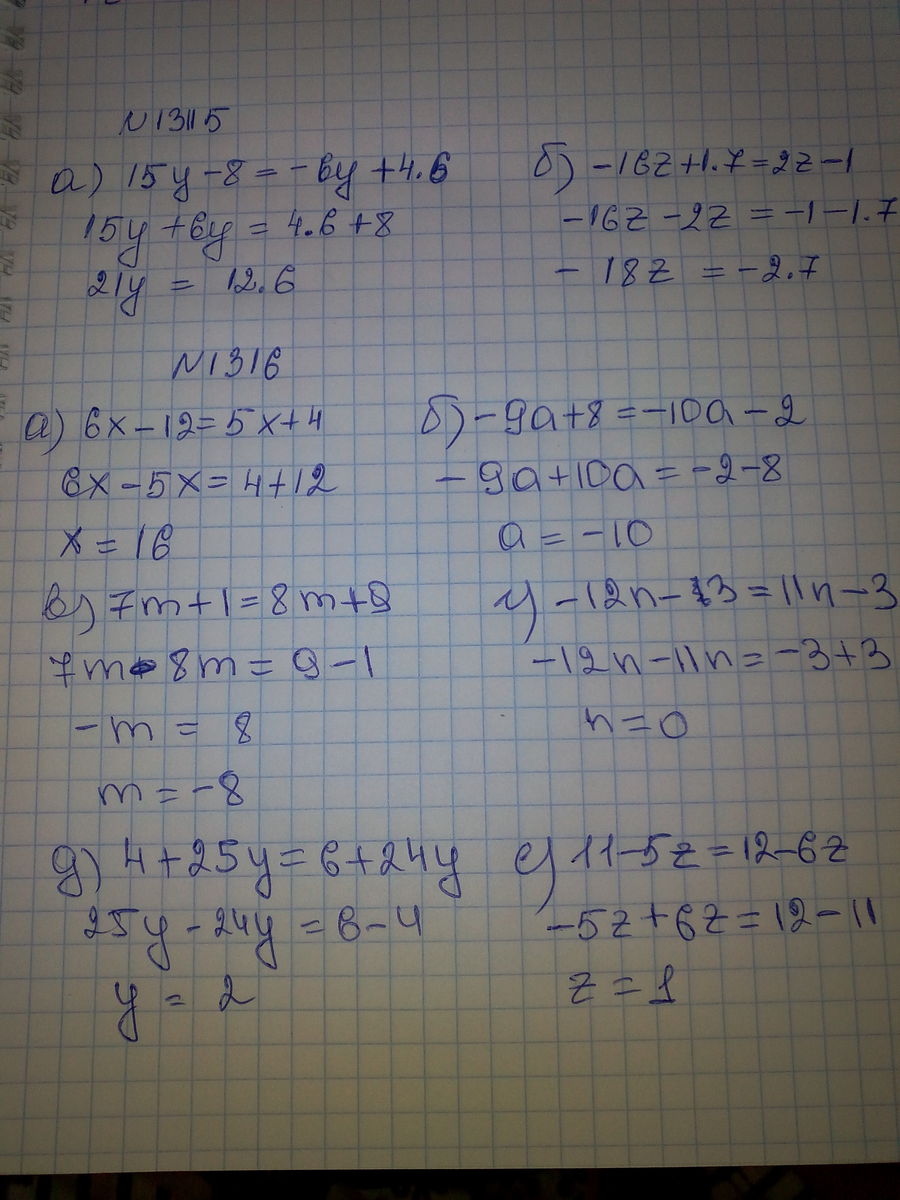 N1315
а) 15y-8=-6y+4.6
15y+6y=4.6+8
21y = 12.6
б) -16z+1.7=2z-1
-16z-2z=-1-1.7
-18z=-2.7
N1316
а) 6x-12=5x+4
6x-5x=4+12
x=16
б) -9a+8=-10a-2
-9a+10a=-2-8
a=-10
в) 7m+1=8m+9
7m-8m=9-1
-m = 8
m=-8
г) -12n-3=11n-3
-12n-11n=-3+3
n=0
д) 4+25y=6+24y
25y-24y=6-4
y = 2
е) 11-5z=12-6z
-5z+6z=12-11
z=1